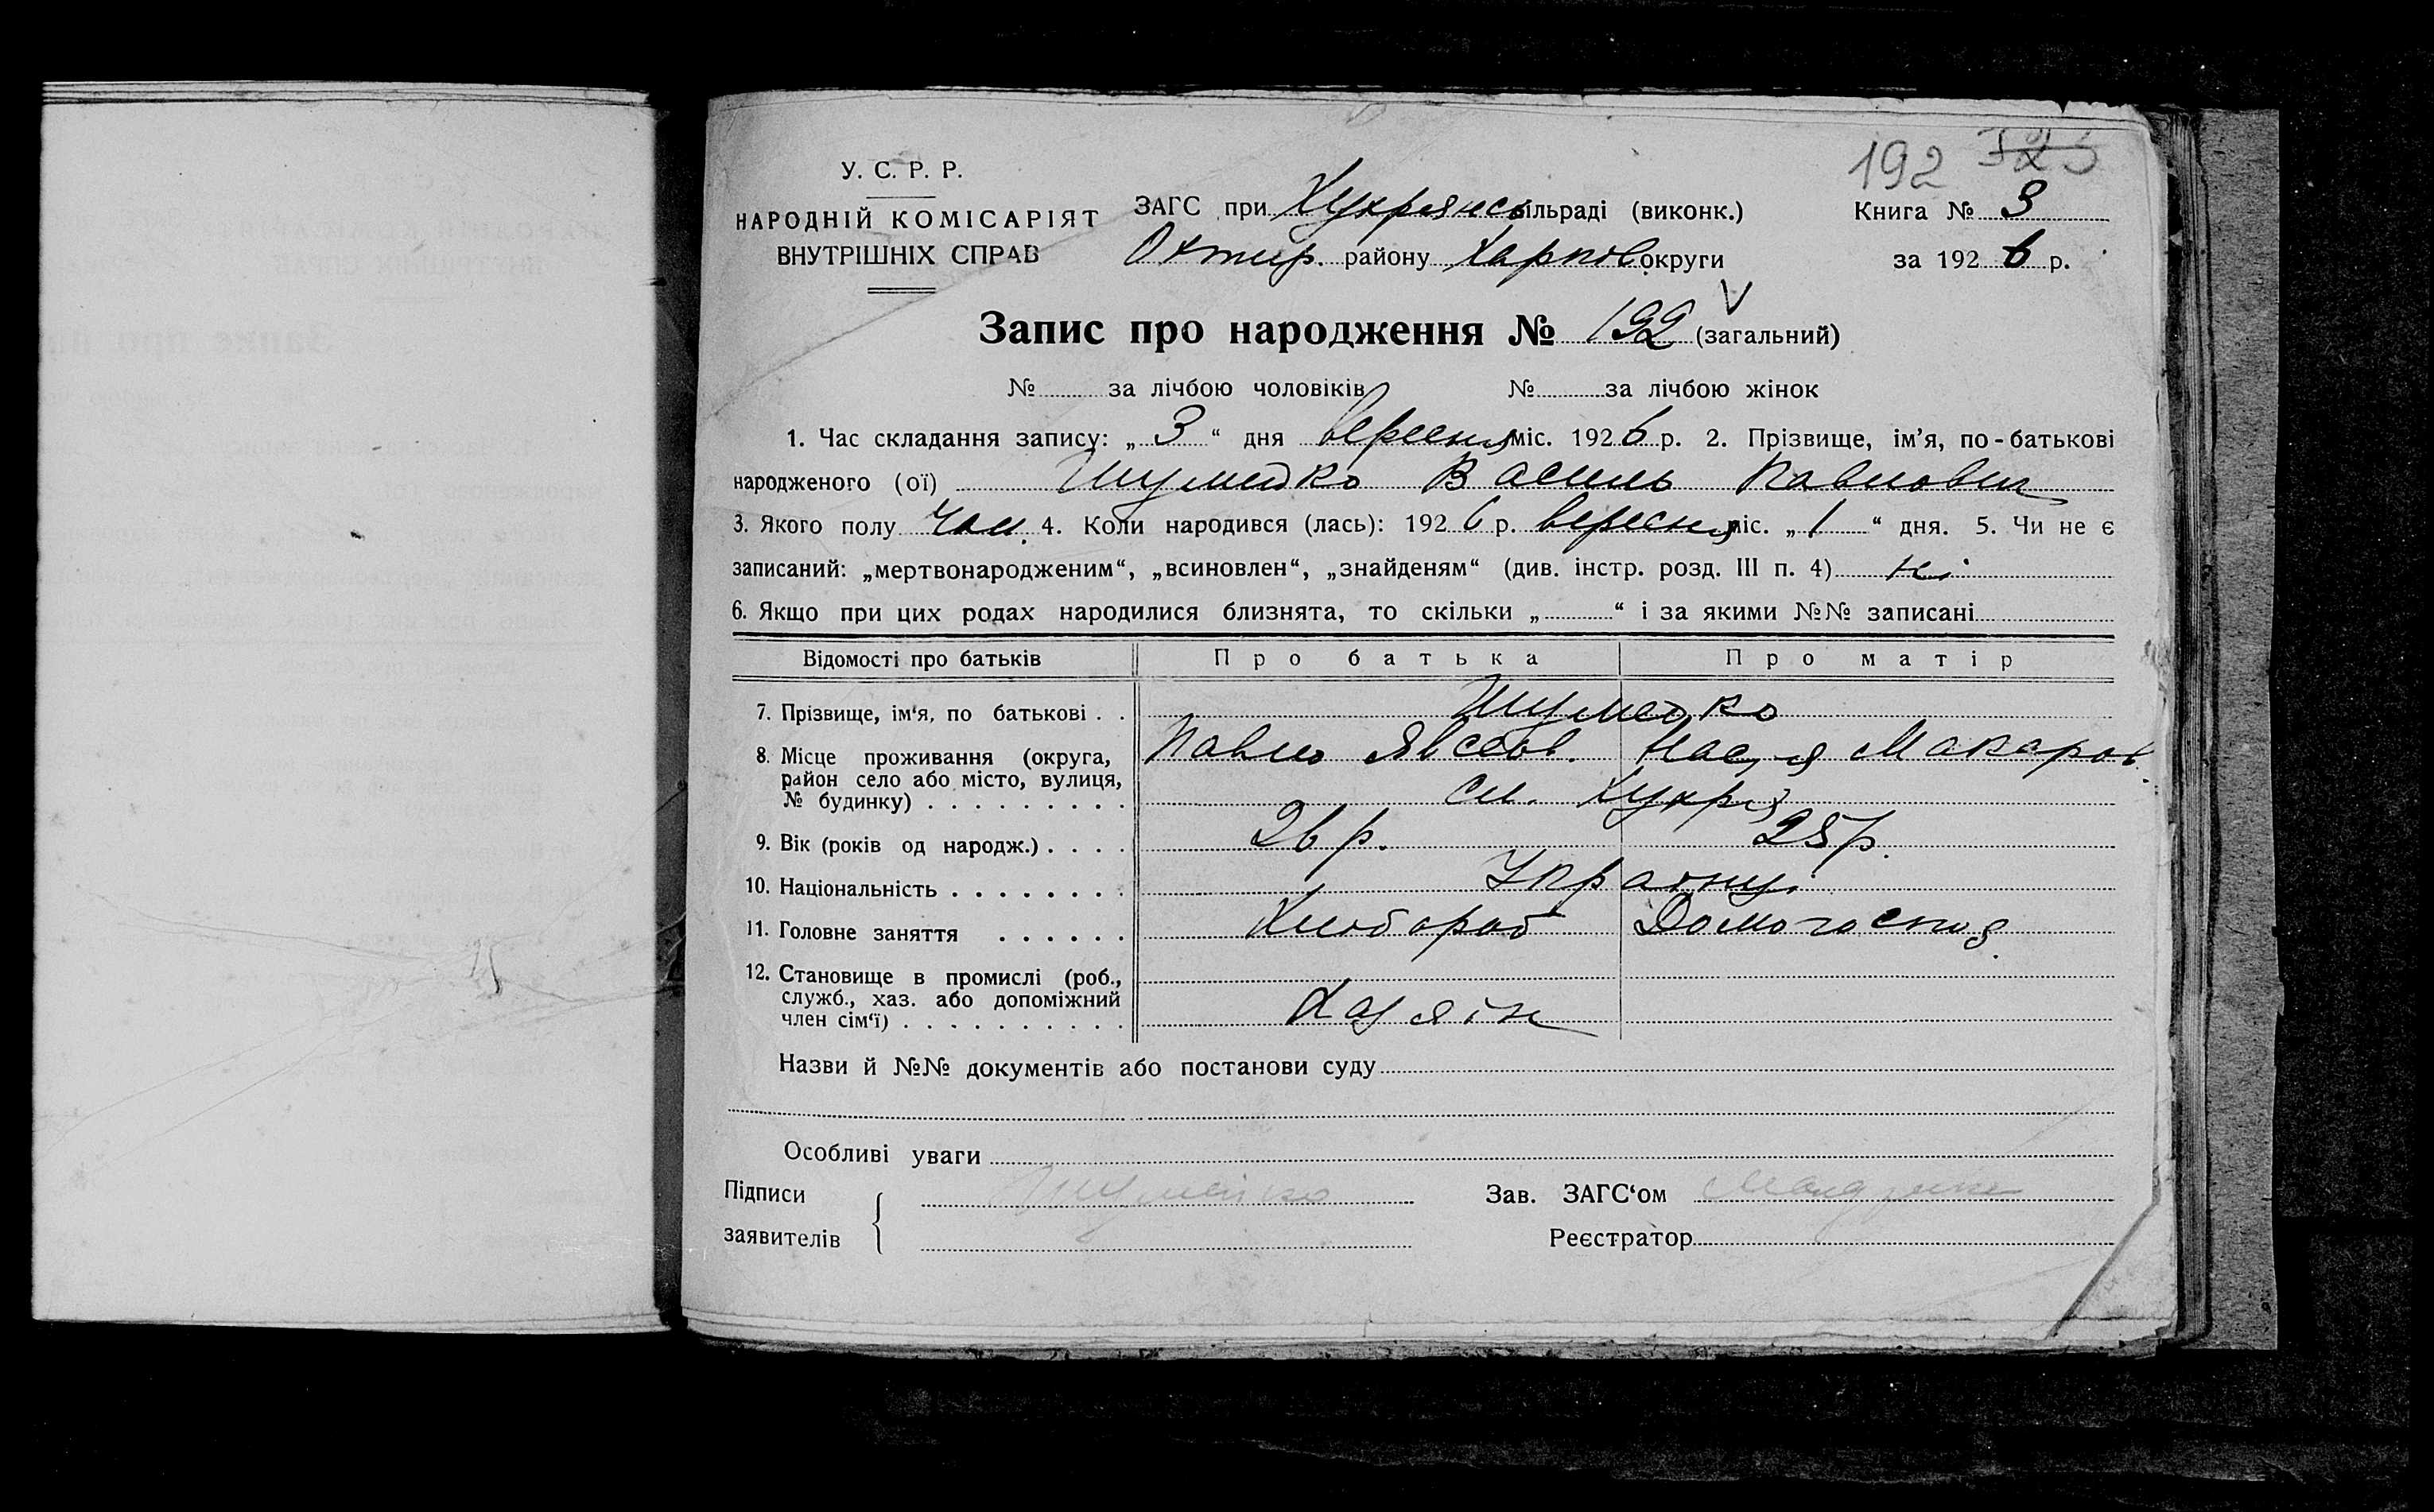 192 123
У. С. Р. Р.
НАРОДНІЙ КОМІСАРІЯТ
ВНУТРІШНІХ СПРАВ
ЗАГС при Хухрянськ сільраді (виконк.)
Охтир. району Харков округи
Книга № 3
за 1926 р.
Запис про народження № 192 (загальний)
№ за лічбою чоловіків № за лічбою жінок
1. Час складання запису: „ 3 “ дня вересня міс. 1926 р. 2. Прізвище, ім’я, по-батькові
народженого (ої) Шумейко Василь Павлович
3. Якого полу чол. 4. Коли народився (лась): 1926 р. вересня міс. „ 1 “ дня. 5. Чи не є
записаний: „мертвонародженим“, „всиновлен“, „знайденям“ (див. інстр. розд. III п. 4) ні
6. Якщо при цих родах народилися близнята, то скільки „ “ і за якими №№ записані
Відомості про батьків Про батька Про матір
7. Прізвище, ім‘я, по батькові . . Шумейко
8. Місце проживання (округа, Павло Явсеєв. Настя Макаров.
район село або місто, вулиця,
№ будинку) . . . . . . . . . сл. Хухря
9. Вік (років од народж.) . . . . 26 р. 25 р.
10. Національність . . . . . . . Українці
11. Головне заняття . . . . . . Хлібороб Домогоспод.
12. Становище в промислі (роб.,
служб., хаз. або допоміжний
член сім‘ї) . . . . . . . . . . Хазяїн
Назви й №№ документів або постанови суду
Особливі уваги
Підписи Шумейко Зав. ЗАГС‘ом
заявителів Реєстратор